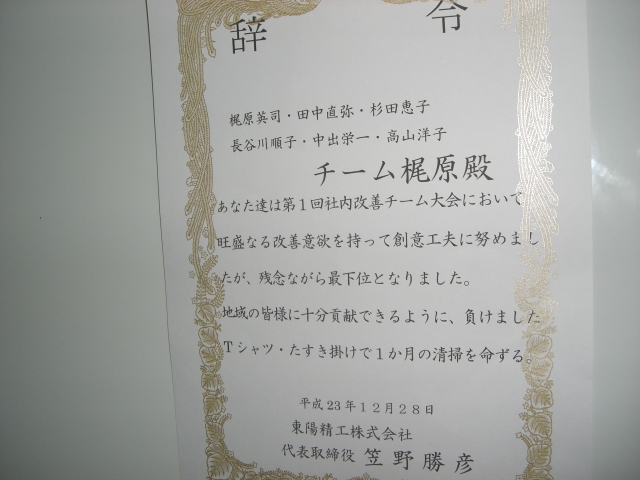 辞令
梶原英司・田中直弥・杉田恵子
長谷川順子・中出栄一・高山洋子
チーム梶原殿
あなた達は第１回社内改善チーム大会において
旺盛なる改善意欲を持って創意工夫に努めまし
たが、残念ながら最下位となりました。
地域の皆様に十分貢献できるように、負けました
Ｔシャツ・たすき掛けで１か月の清掃を命ずる。
平成23年１２月２８日
東陽精工株式会社
代表取締役 笠野勝彦